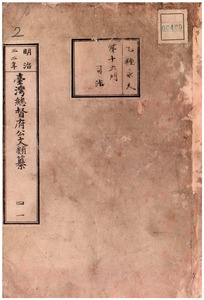 2
明治
三二年
臺灣總督府公文類纂
四一
乙種永久
第十五門
司法